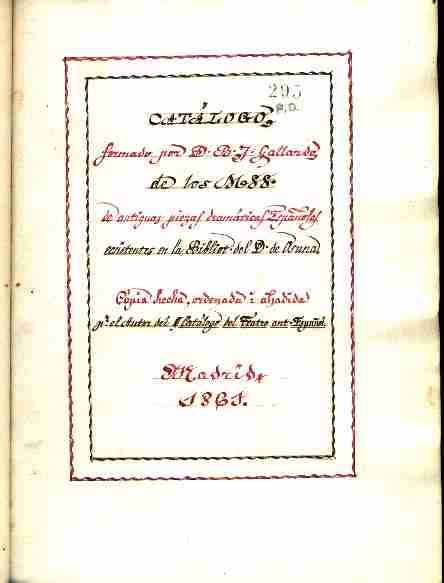 295
R.D.
CATÁLOGO,
formado por D. B. J. Gallardo,
de los MSS.
de antiguas piezas dramáticas Españolas
existentes en la Bibliot. del D. de Osuna
Cópia hecha, ordenada i añadida
pr. el Autor del Catálogo del Teatro ant. Español.
Madrid,
1861.